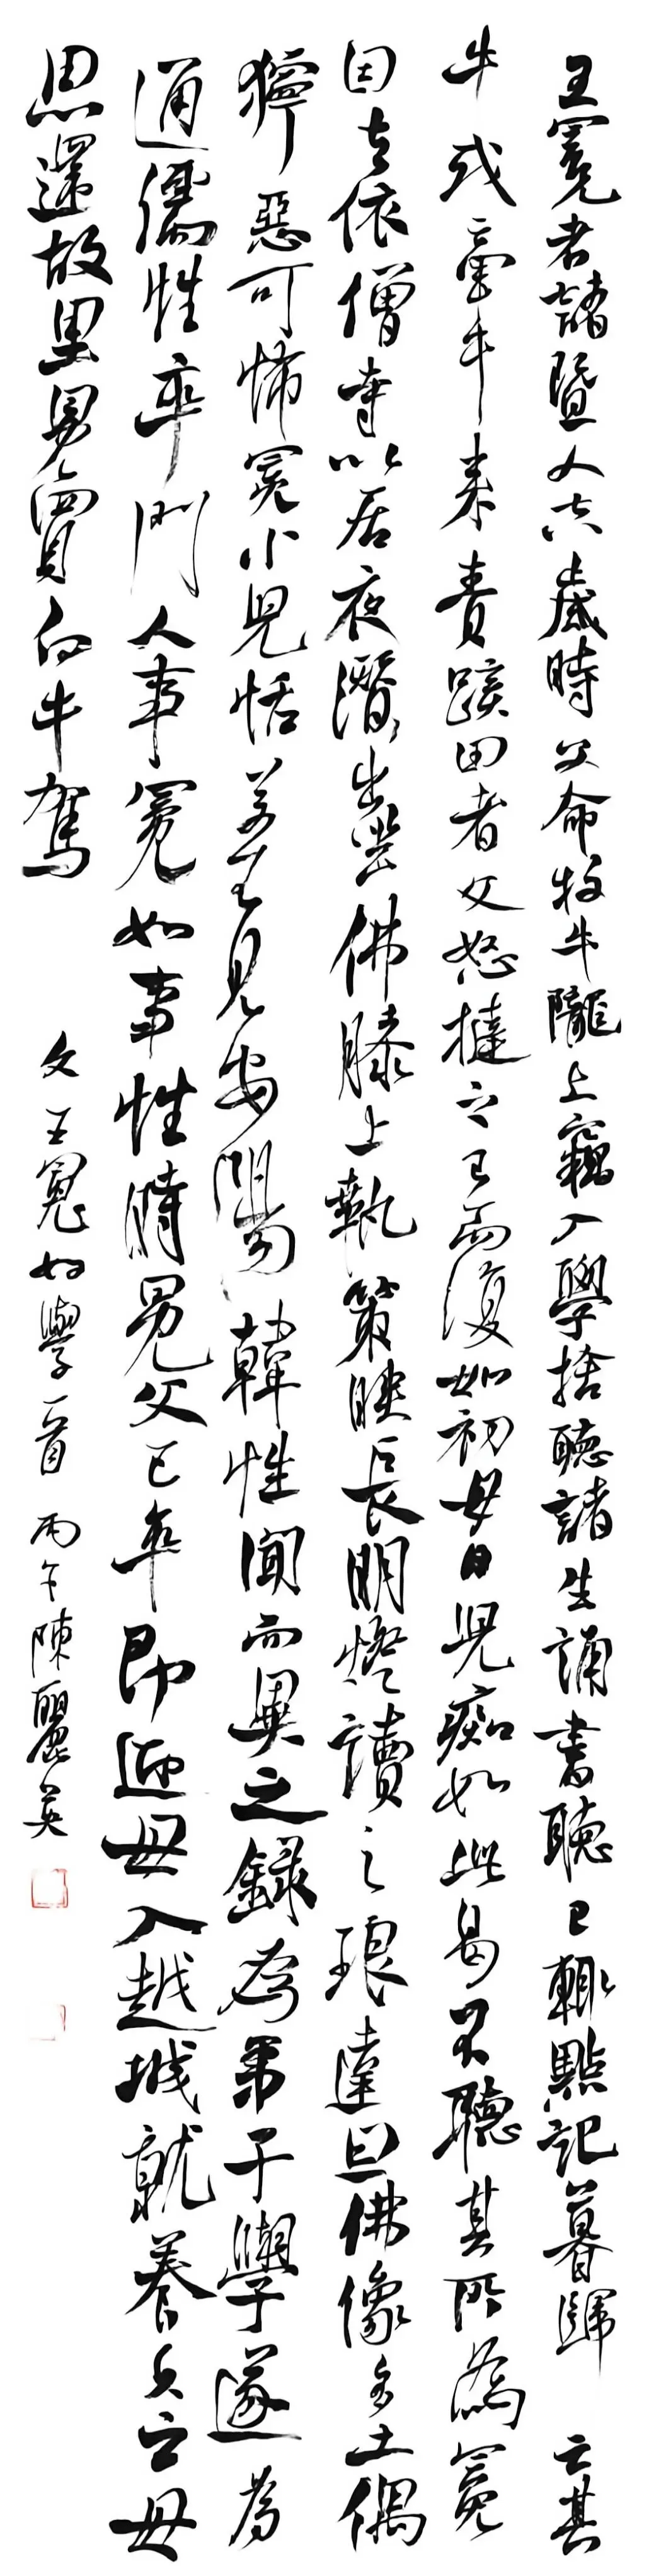 王冕者諸暨人六歲時父命牧牛隴上竊入學捨聽諸生誦書聽已輒點記暮歸亡其
牛或牽牛來責蹊田者父怒撻之已而復如初母曰兒痴如此曷不聽其所為冕
因去依僧寺以居夜潛出坐佛膝上執策映長明燈讀之琅達旦佛像多土偶
獰惡可怖冕小兒恬若不見安陽韓性聞而異之錄為弟子學遂為
通儒性卒門人事冕如事性時冕父已卒即迎母入越城就養久之母
思還故里冕買白牛駕
文王冕好學一首 丙午陳麗英